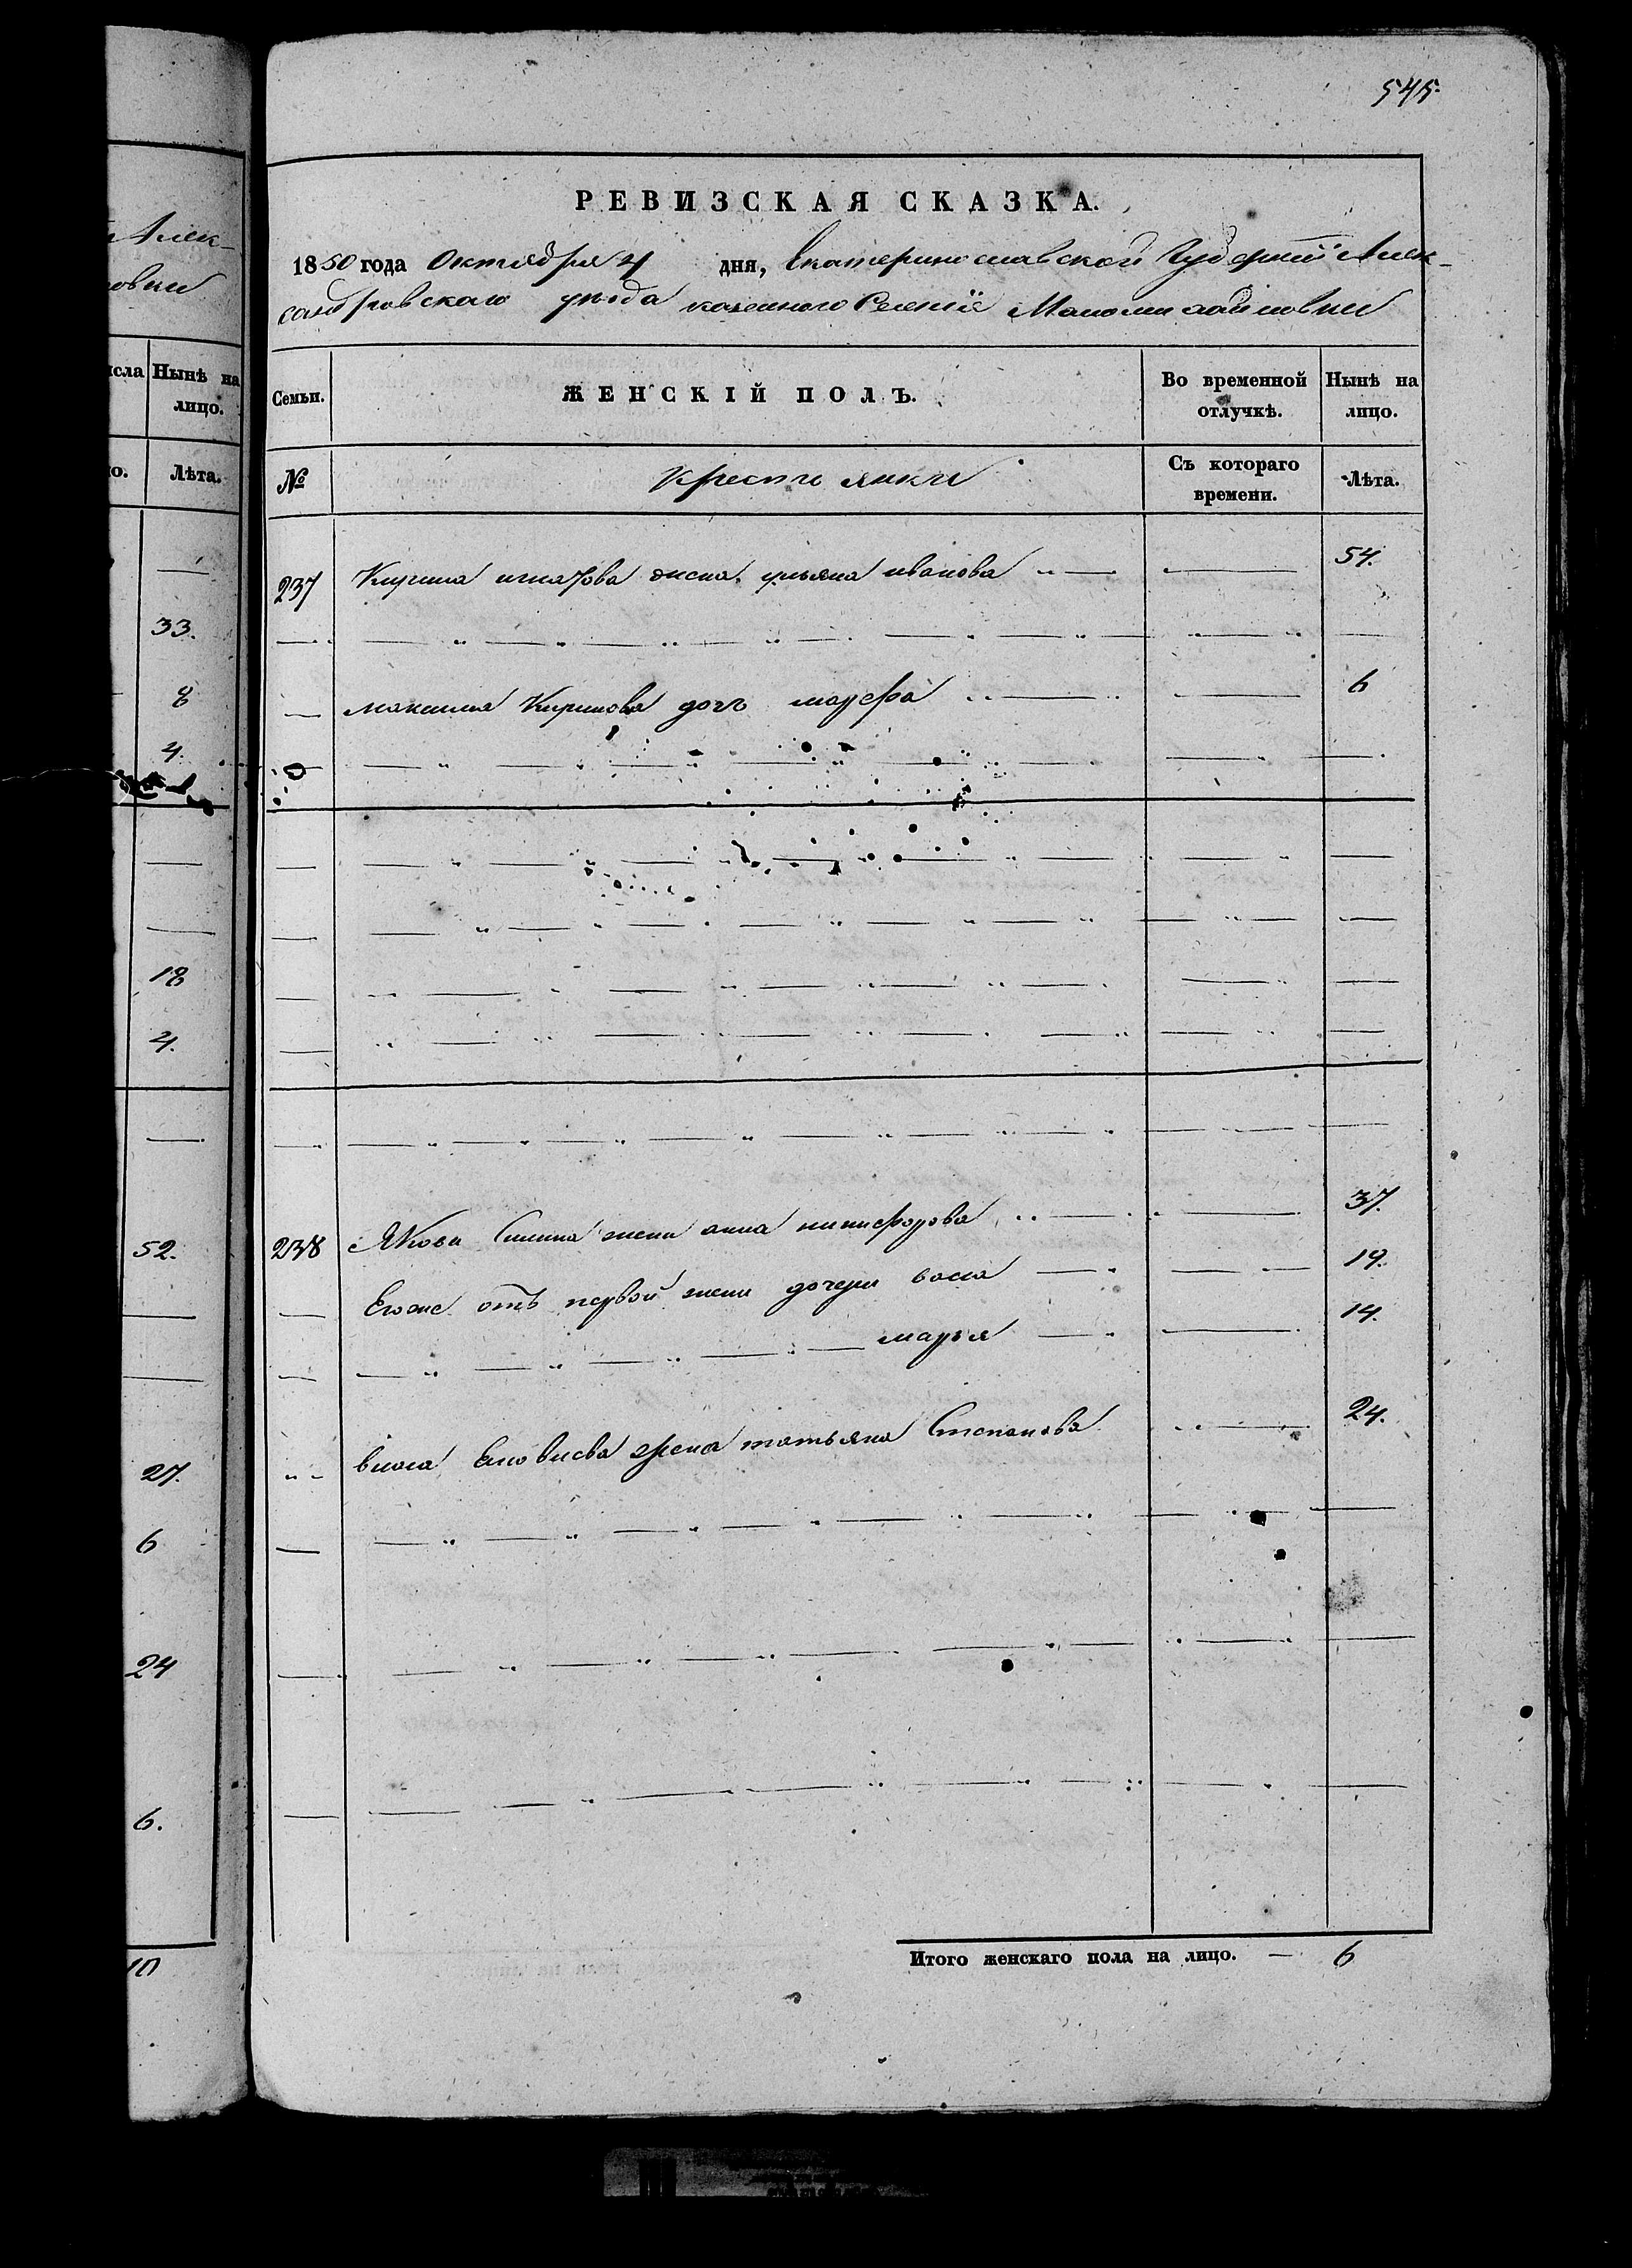 545.
Алек-
овки
РЕВИЗСКАЯ СКАЗКА.
1850 года Октября 4 дня, Екатеринославской Губернии Алек-
сандровскаго уезда казенного Селения Маломихайловки
исла Нынѣ на лицо.
Семьи. ЖЕНСКІЙ ПОЛЪ. Во временной отлучкѣ. Нынѣ на лицо.
о. Лѣта.
№ Крестьянки Съ котораго времени. Лѣта.
237 Кирила жена ульяна иванова 54.
33.
8 максима Кирилова дочь марфа 6
4.
18
4.
52.
238 Якова жена анна никифорова 37.
Егоже отъ первой жены дочери васа 19.
марья 14.
27. власа жена татьяна Степанова 24.
6
24
6.
10
Итого женскаго пола на лицо. — 6